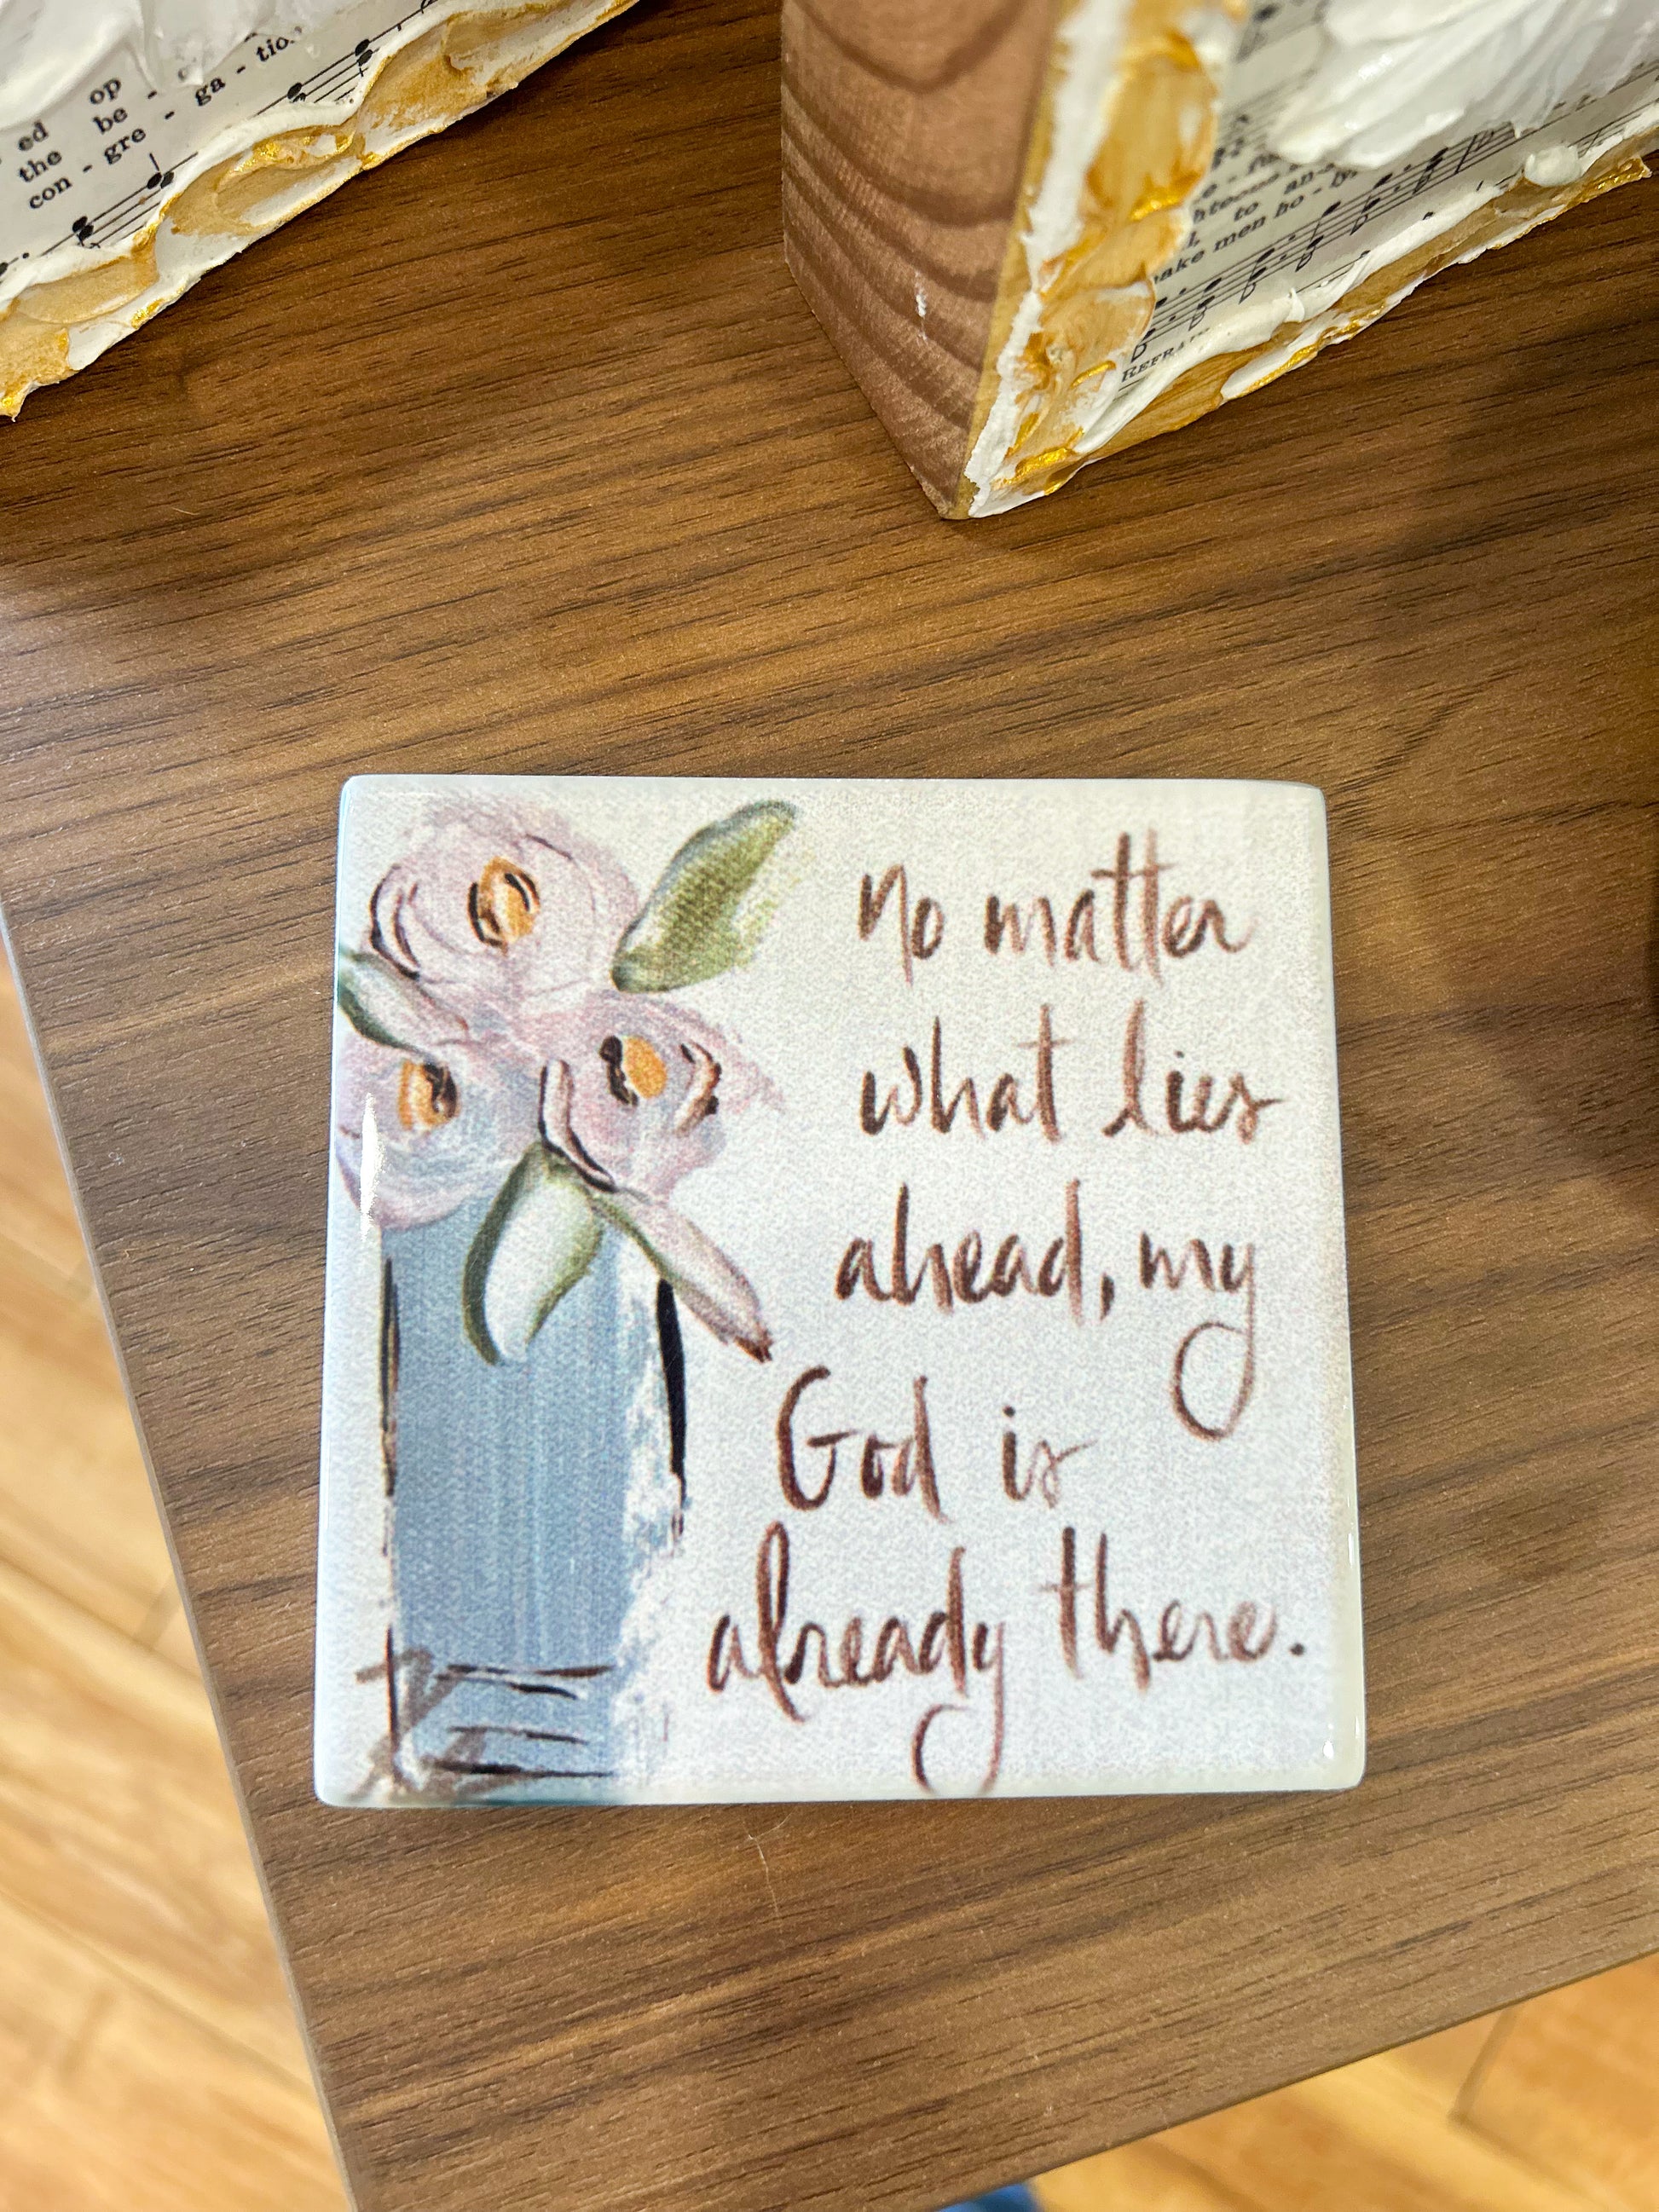 ed op
the be -
con - gre - ga - tio
to an
ake men ho - 
REFRA
No matter
what lies
ahead, my
God is
already there.